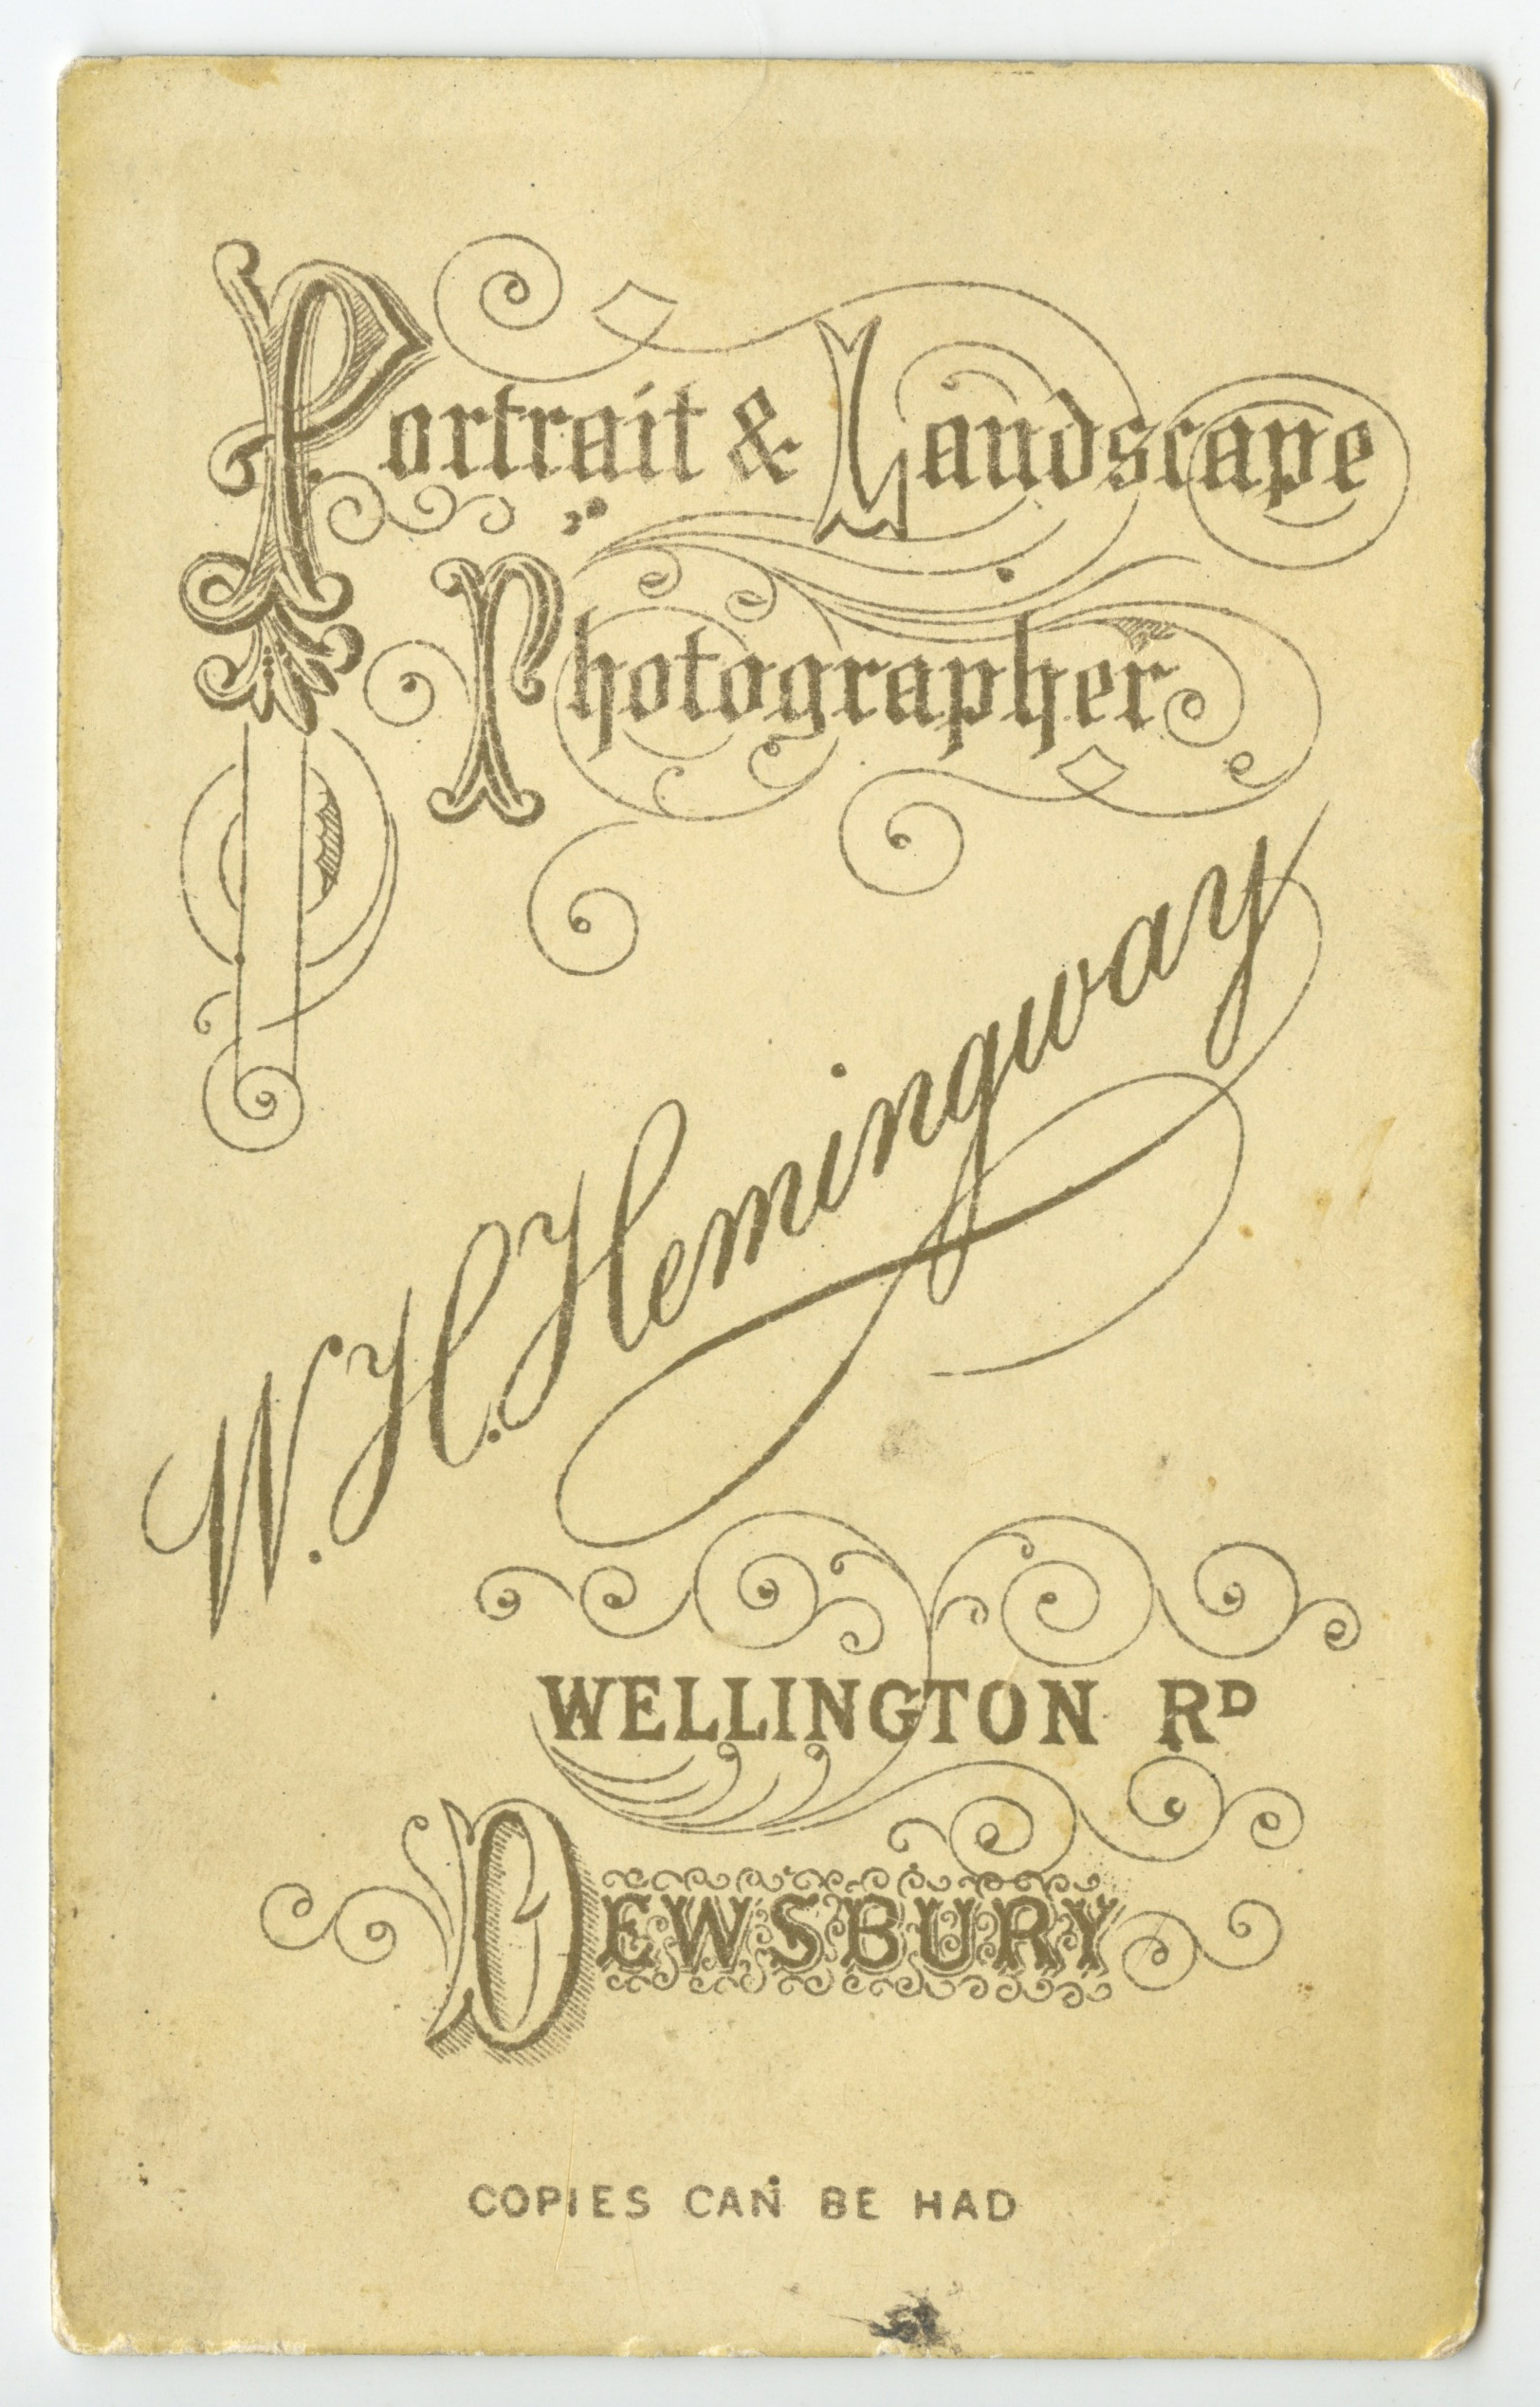 Portrait & Landscape
Photographer
W. H. Hemingway
WELLINGTON RD
DEWSBURY
COPIES CAN BE HAD